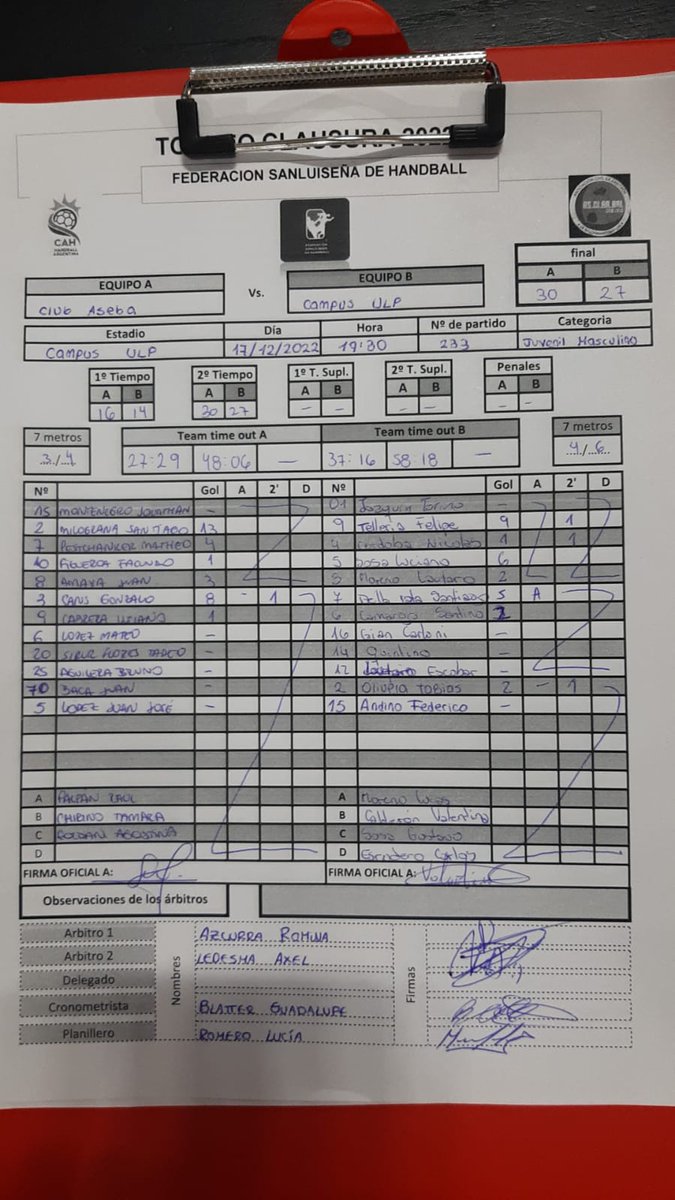 TORNEO CLAUSURA 2022
FEDERACION SANLUISEÑA DE HANDBALL
CAH
HANDBALL
ARGENTINA
final
A B
30 27
EQUIPO A Vs. EQUIPO B
Club Aseba Campus ULP
Estadio Día Hora Nº de partido Categoria
Campus ULP 17/12/2022 19:30 233 Juvenil Masculino
1º Tiempo 2º Tiempo 1º T. Supl. 2º T. Supl. Penales
A B A B A B A B A B
16 14 30 27 - - - - - -
7 metros Team time out A Team time out B 7 metros
3/4 27:29 48:06 - 37:16 58:18 - 4/6
Nº Gol A 2' D Nº Gol A 2' D
15 MONTENEGRO JONATHAN - 01 Joaquin -
2 SANTIAGO 13 9 Felipe 9 1
7 MATHEO 4 4 Cordoba Nicolas 1 1
10 FIGUEROA FACUNDO 1 5 Sosa Luciano 6
8 AMAYA JUAN 3 Moreno Lautaro 2
3 GONZALO 8 - 1 7 Santiago 5 A
9 CABRERA LUCIANO 1 6 Santino
6 LOPEZ MATEO - 16 Gian Carloni -
20 FLORES TADEO - 14 Quintino -
25 AGUILERA BRUNO - 12 Escobar -
70 BACA JUAN - 2 TOBIAS 2 - 1
5 LOPEZ JUAN JOSÉ - 15 Andino Federico -
A A Moreno
B CHIRINO TAMARA B Calderon Valentina
C C Sosa Gustavo
D D Escudero Carlos
FIRMA OFICIAL A: FIRMA OFICIAL A:
Observaciones de los árbitros
Nombres
Firmas
Arbitro 1 AZCURRA ROMINA
Arbitro 2 LEDESMA AXEL
Delegado
Cronometrista BLATTER GUADALUPE
Planillero ROMERO LUCÍA